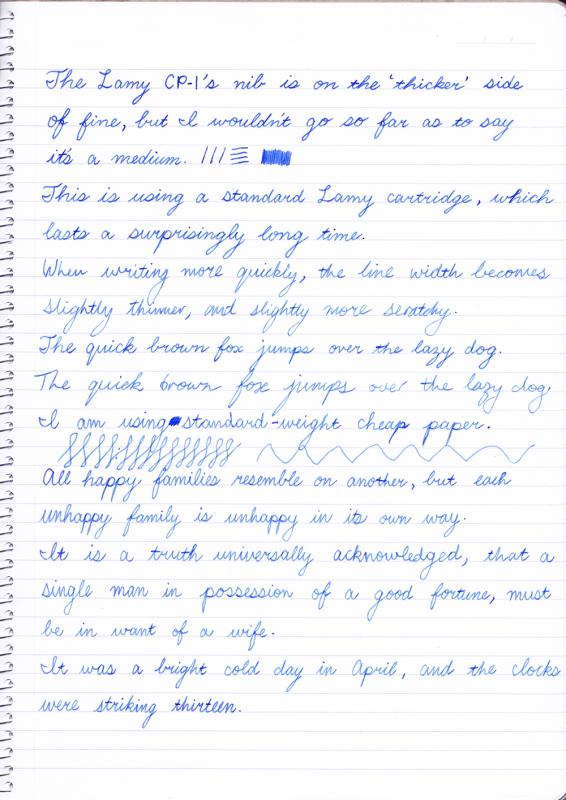 The Lamy CP-1's nib is on the 'thicker' side
of fine, but I wouldn't go so far as to say
it's a medium.
This is using a standard Lamy cartridge, which
lasts a surprisingly long time.
When writing more quickly, the line width becomes
slightly thinner, and slightly more scratchy.
The quick brown fox jumps over the lazy dog.
The quick brown fox jumps over the lazy dog.
I am using standard-weight cheap paper.
All happy families resemble on another, but each
unhappy family is unhappy in its own way.
It is a truth universally acknowledged, that a
single man in possession of a good fortune, must
be in want of a wife.
It was a bright cold day in April, and the clocks
were striking thirteen.